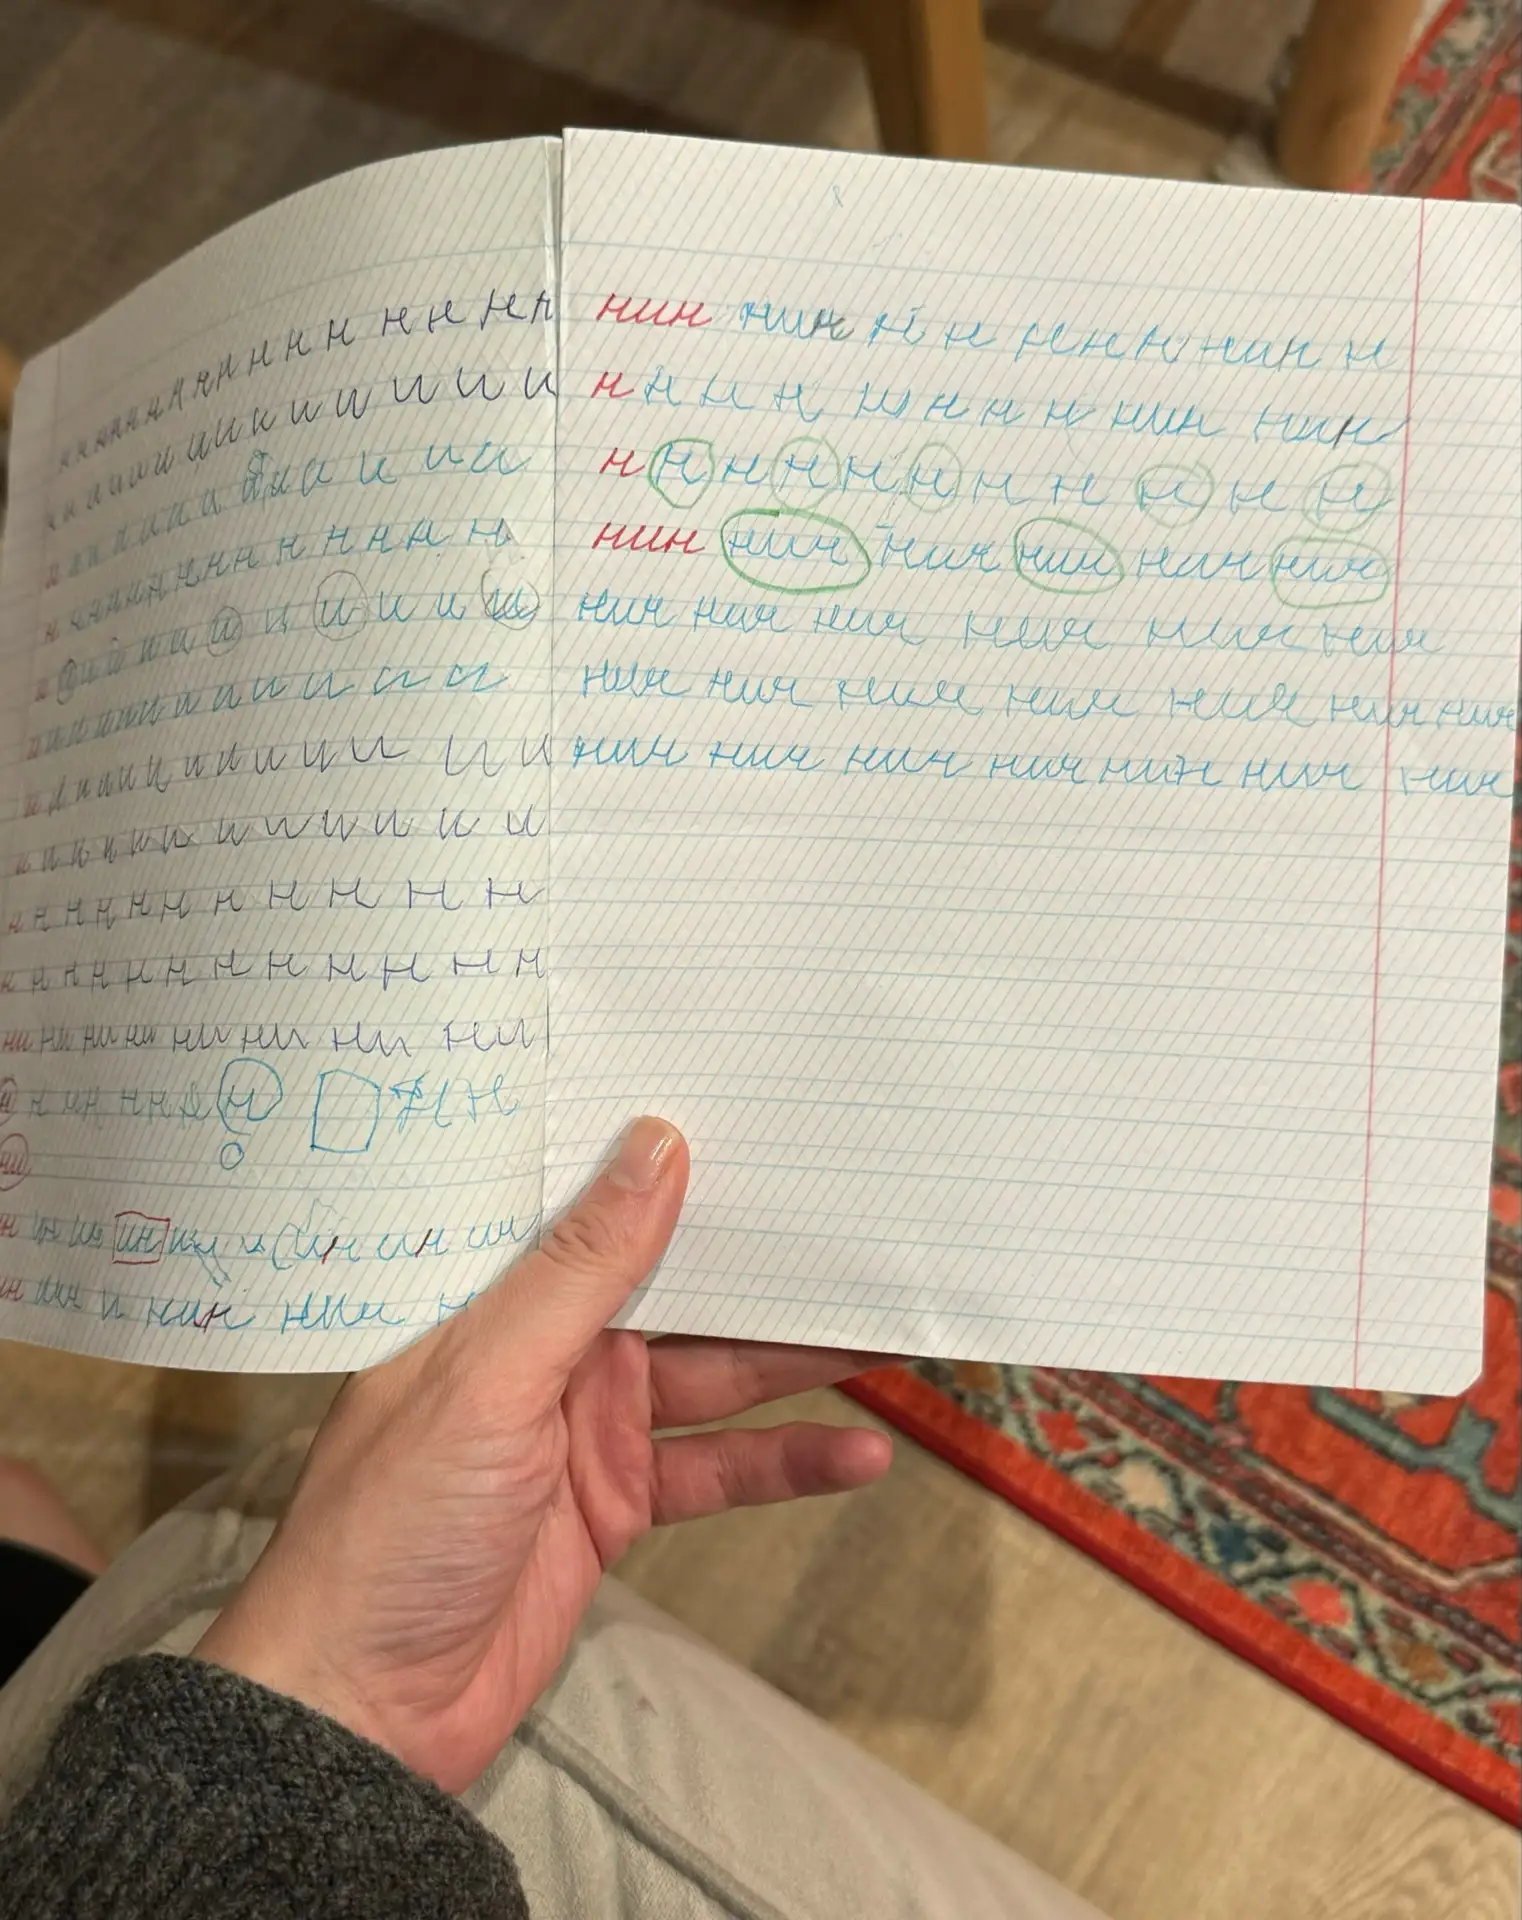 н н н н н н н н н н н н н н н
и и и и и и и и и и и и и и
и и и и и и и и и и и и и
н н н н н н н н н н н н н
и и и и и и и и и и и и
и и и и и и и и и и и и и
и и и и и и и и и и и и и и
и и и и и и и и и и и и и
н н н н н н н н н н н
н н н н н н н н н н н н
ни ни ни ни ни ни ни ни
н
ни
ин ин ин ин ин ин ин
ин ин и нин нии
нин нин н н н н н н нин н
н н и н н н н нин нин
н н н н н н н н н н н
нин нин нин нин нин нин
нин нин нин нин нин нин
нин нин нин нин нин нин нин
нин нин нин нин нин нин нин